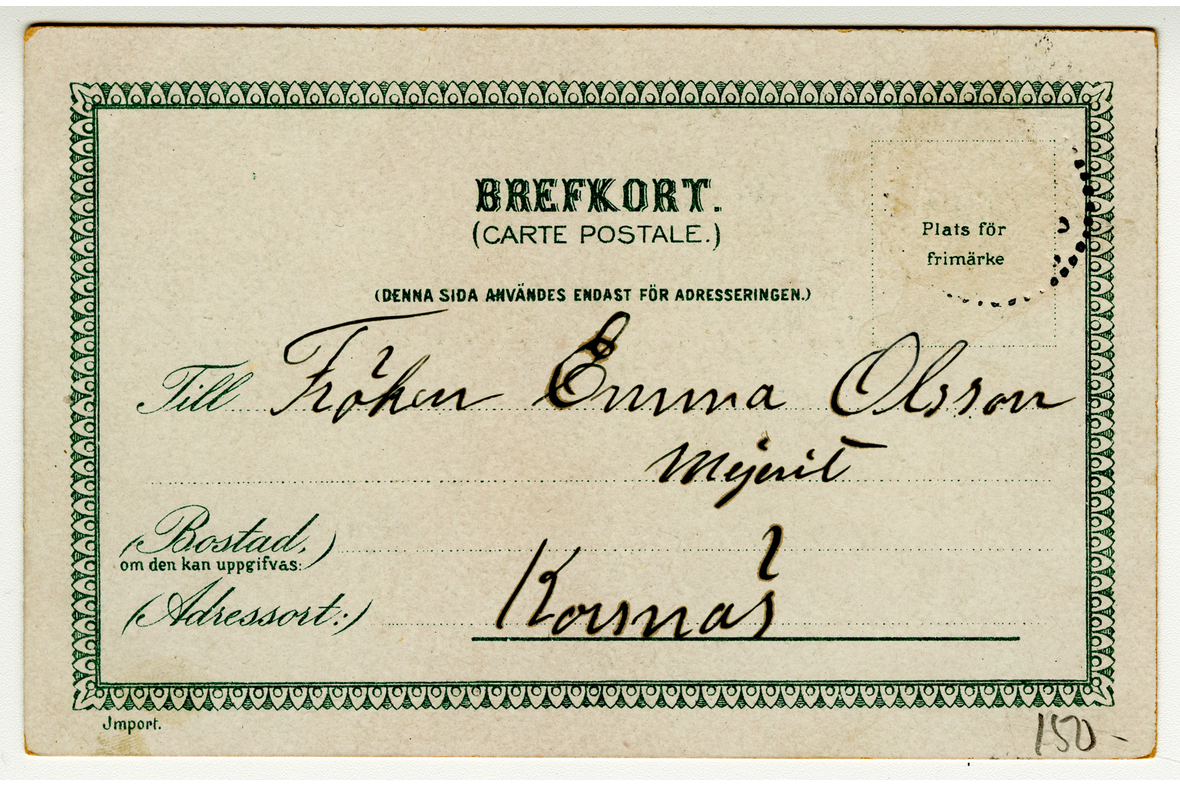 BREFKORT.
(CARTE POSTALE.)
Plats för
frimärke
(DENNA SIDA ANVÄNDES ENDAST FÖR ADRESSERINGEN.)
Till Fröken Emma Olsson
Mejerit
(Bostad,)
om den kan uppgifvas:
(Adressort:) Korsnäs
Import.
150-